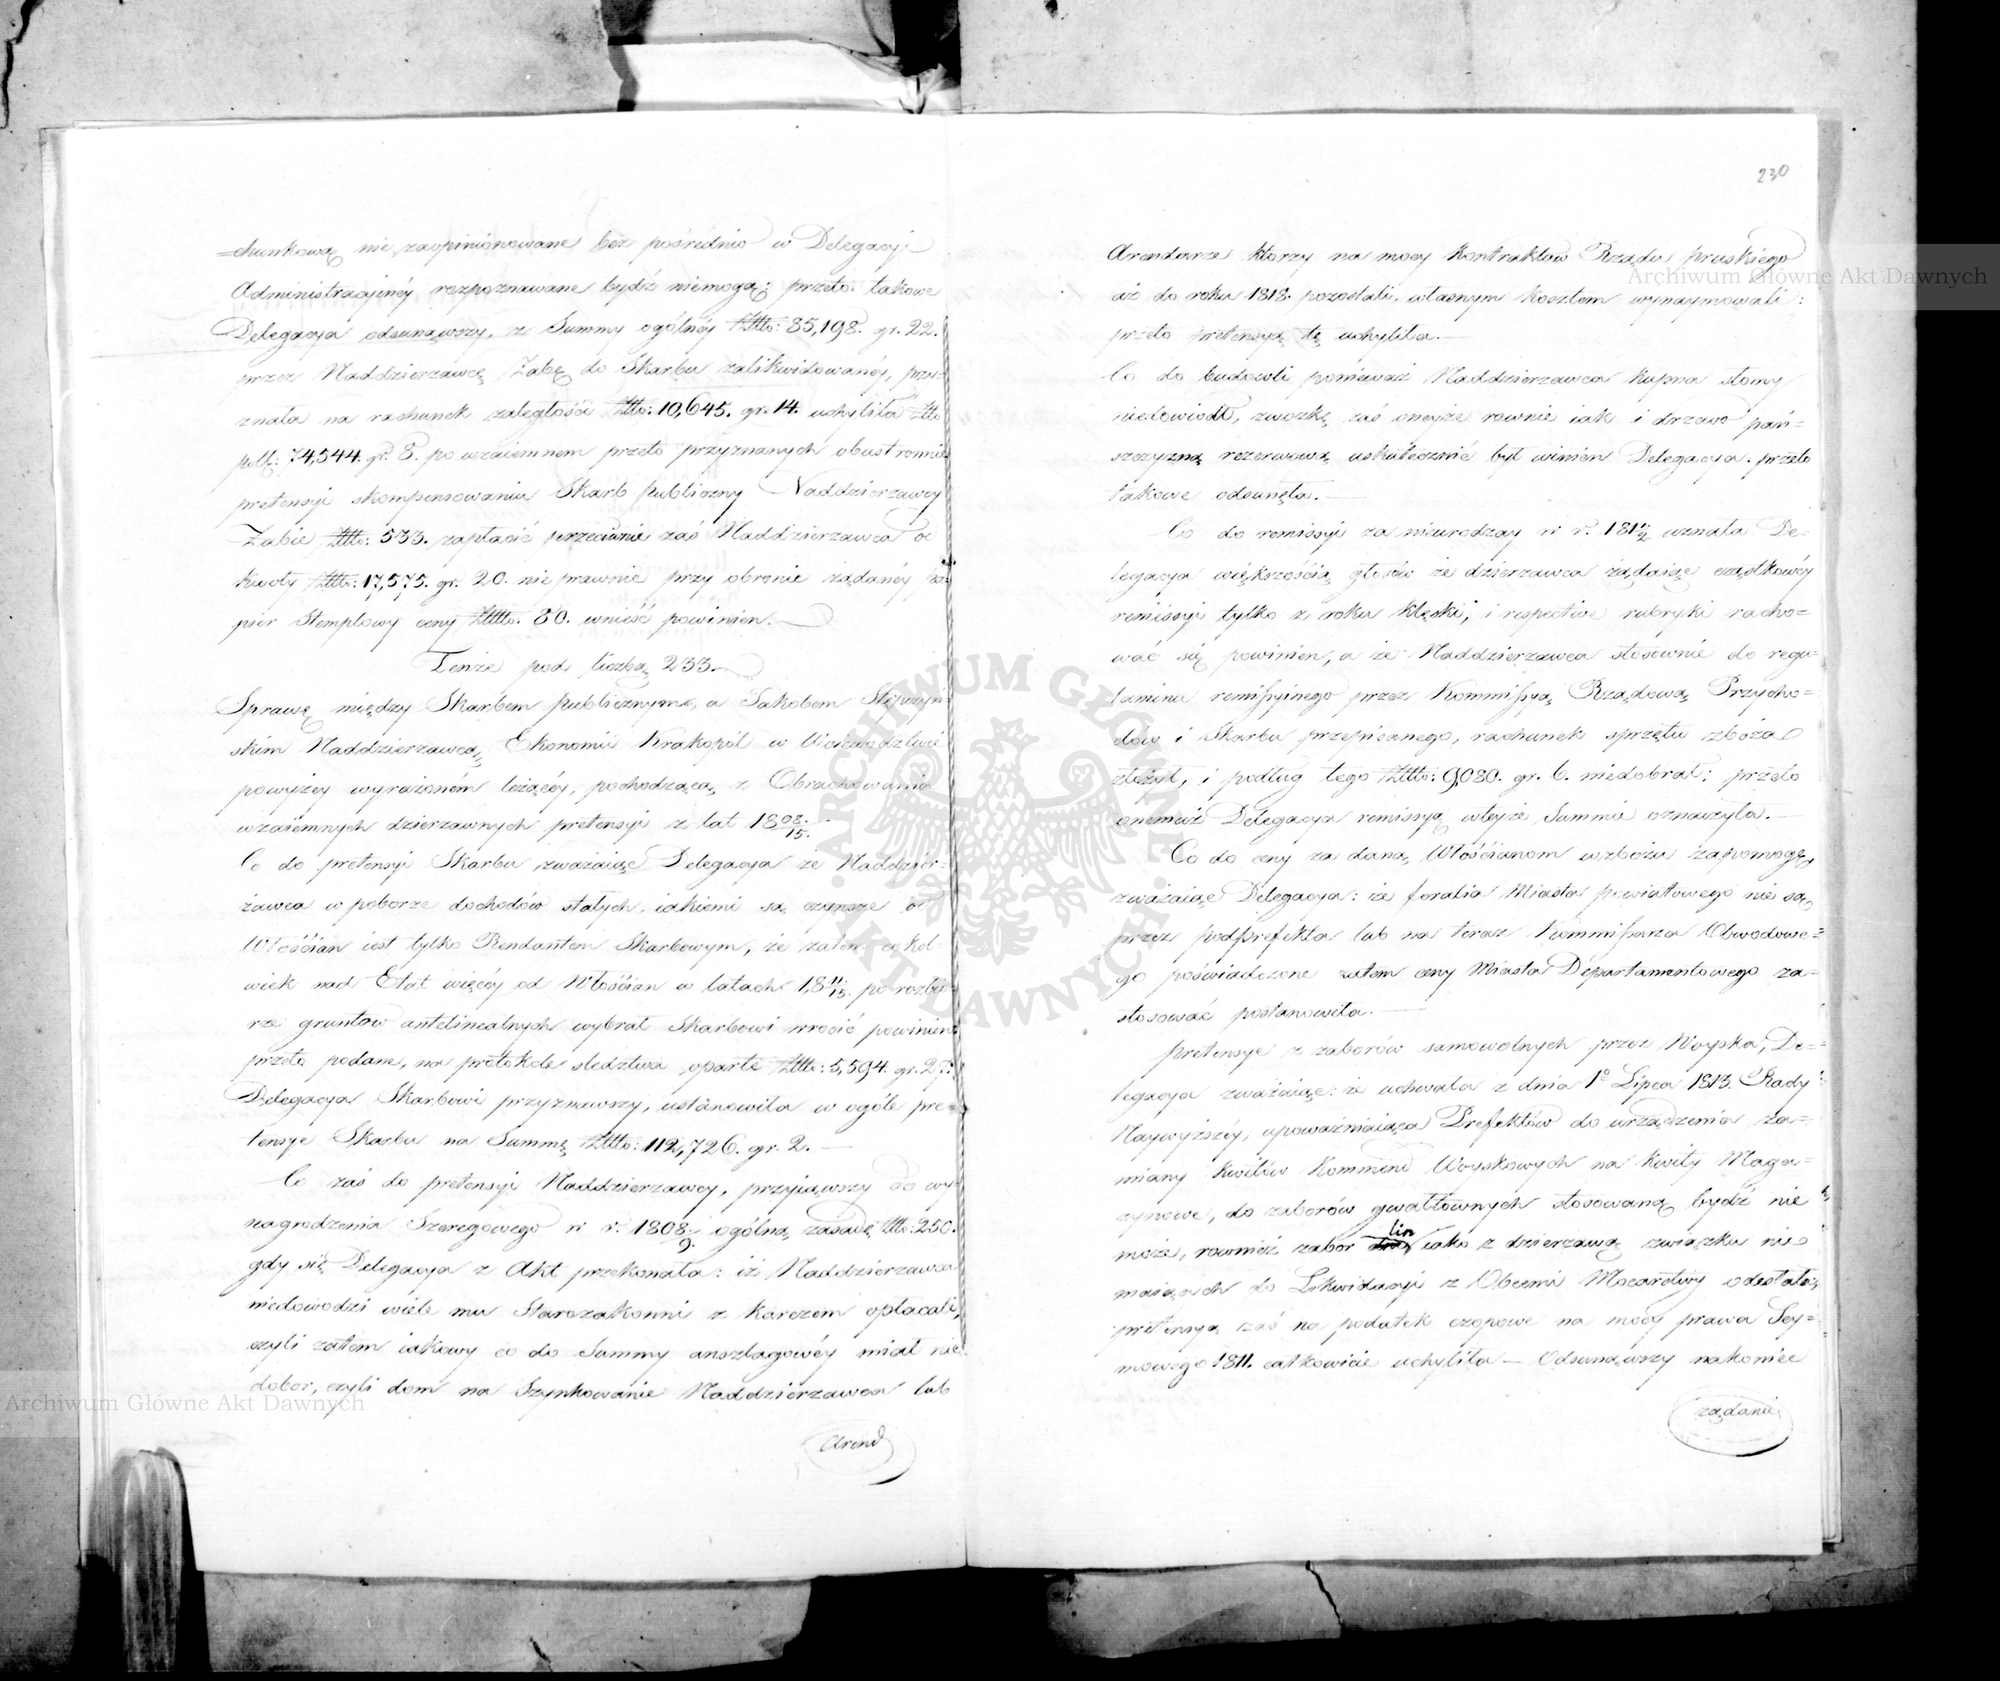 chunkową nie zaopiniowane bez pośrednio w Delegacyi
Administracyinéy rozpoznawane bydź niemogą; przeto takowe
Delegacya odsunąwszy, z Summy ogólnéy Złtto: 85,198. gr. 22.
przez Naddzierzawcę Zabę do Skarbu zalikwidowanéy, przy=
znała na rachunek zaległości Złtto: 10,645. gr. 14. uchyliła Złtto
pols: 74,544. gr. 8. po wzaiemnem przeto przyznanych obustronnie
pretensyi skompensowaniu Skarb publiczny Naddzierzawcy
Zabie Złtto: 533. zapłacić przeciwnie zaś Naddzierzawca od
kwoty Złtto: 17,575. gr. 20. nieprawnie przy obronie żądanéy pa=
pier Stemplowy ceny Złtto. 80. wnieść powinien.
Tenże pod liczbą 233.
Sprawę między Skarbem publicznym, a Jakobem Stępczyń=
skim Naddzierzawcą Ekonomii Krakopól w Woiewództwie
powyżey wyrażoném leżącéy, pochodzącą z Obrachowania
wzaiemnych dzierzawnych pretensyi z lat 1808/15.
Co do pretensyi Skarbu zważaiąc Delegacya że Naddzier=
żawca w poborze dochodów stałych, iakiemi są czynsze od
Włościan iest tylko Rendantem Skarbowym, że zatem cokol=
wiek nad Etat więcéy od Włościan w latach 1811/15. po rozbio=
rze gruntow antelinealnych wybrał Skarbowi wrocić powinien
przeto podane, na protokole sledztwa oparte Złtto: 5,594. gr. 27.
Delegacya Skarbowi przyznawszy, ustanowiła w ogóle pre=
tensye Skarbu na Summę Złtto: 112,726. gr. 2. —
Co zaś do pretensyi Naddzierzawcy, przyiąwszy do wy=
nagrodzenia Szeregowego w r. 1808/9. ogólną zasadę Złtto: 250.
gdy się Delegacya z Akt przekonała: iż Naddzierzawca
niedowodzi wiele mu Starozakonni z karczem opłacali,
czyli zatem iakowy co do Summy anszlagowéy miał nie
dobor, czyli dom na Szynkowanie Naddzierzawca lub
Arend
230
Arendarze ktorzy na mocy kontraktow Rządu pruskiego
aż do roku 1813. pozostali, własnym kosztem wynaymowali:
przeto pretensyą tę uchyliła. —
Co do budowli ponieważ Naddzierzawca kupna słomy
niedowiodł, zwozkę zaś oneyże rownie iak i drzewo pań=
szczyzną rezerwową uskutecznić był winien Delegacya przeto
takowe odsunęła. —
Co do remissyi za nieurodzay w r. 1811/2 uznała De=
legacya większością głosów że dzierzawca żądaiąc cząstkowéy
remissyi tylko z roku klęski, i respective rubryki racho=
wać się powinien, a że Naddzierzawca stosownie do regu=
laminu remissyinego przez Kommissyą Rządową Przycho=
dów i Skarbu przepisanego, rachunek sprzętu zboża
złożył, i podług tego Złtto: 9,080. gr. 6. niedobrał; przeto
onemuż Delegacya remissyą wteyże Summie oznaczyła. —
Co do ceny za daną Włościanom wzbożu zapomogę,
zważaiąc Delegacya: że foralia Miasta powiatowego nie są
przez podprefekta lub na teraz Kommissarza Obwodowe=
go poświadczone zatem ceny Miasta Departamentowego za=
stosować postanowiła. —
Pretensye z zaborów samowolnych przez Woyska, De=
legacya zważaiąc: że uchwała z dnia 1o Lipca 1813. Rady
Naywyższéy, upoważniaiąca Prefektów do urządzenia za=
miany kwitów Kommend Woyskowych na kwity Maga=
zynowe, do zaborów gwałtownych stosowaną bydź nie
może, rownież zabor lin iako z dzierzawą związku nie
maiących do Likwidacyi z Obcemi Mocarstwy odesłała,
pretensyą zaś na podatek czopowe na mocy prawa Sey=
mowego 1811. całkowicie uchyliła — Odsunąwszy nakoniec
żądanie
Archiwum Główne Akt Dawnych
Archiwum Główne Akt Dawnych
ARCHIWUM GŁÓWNE AKT DAWNYCH